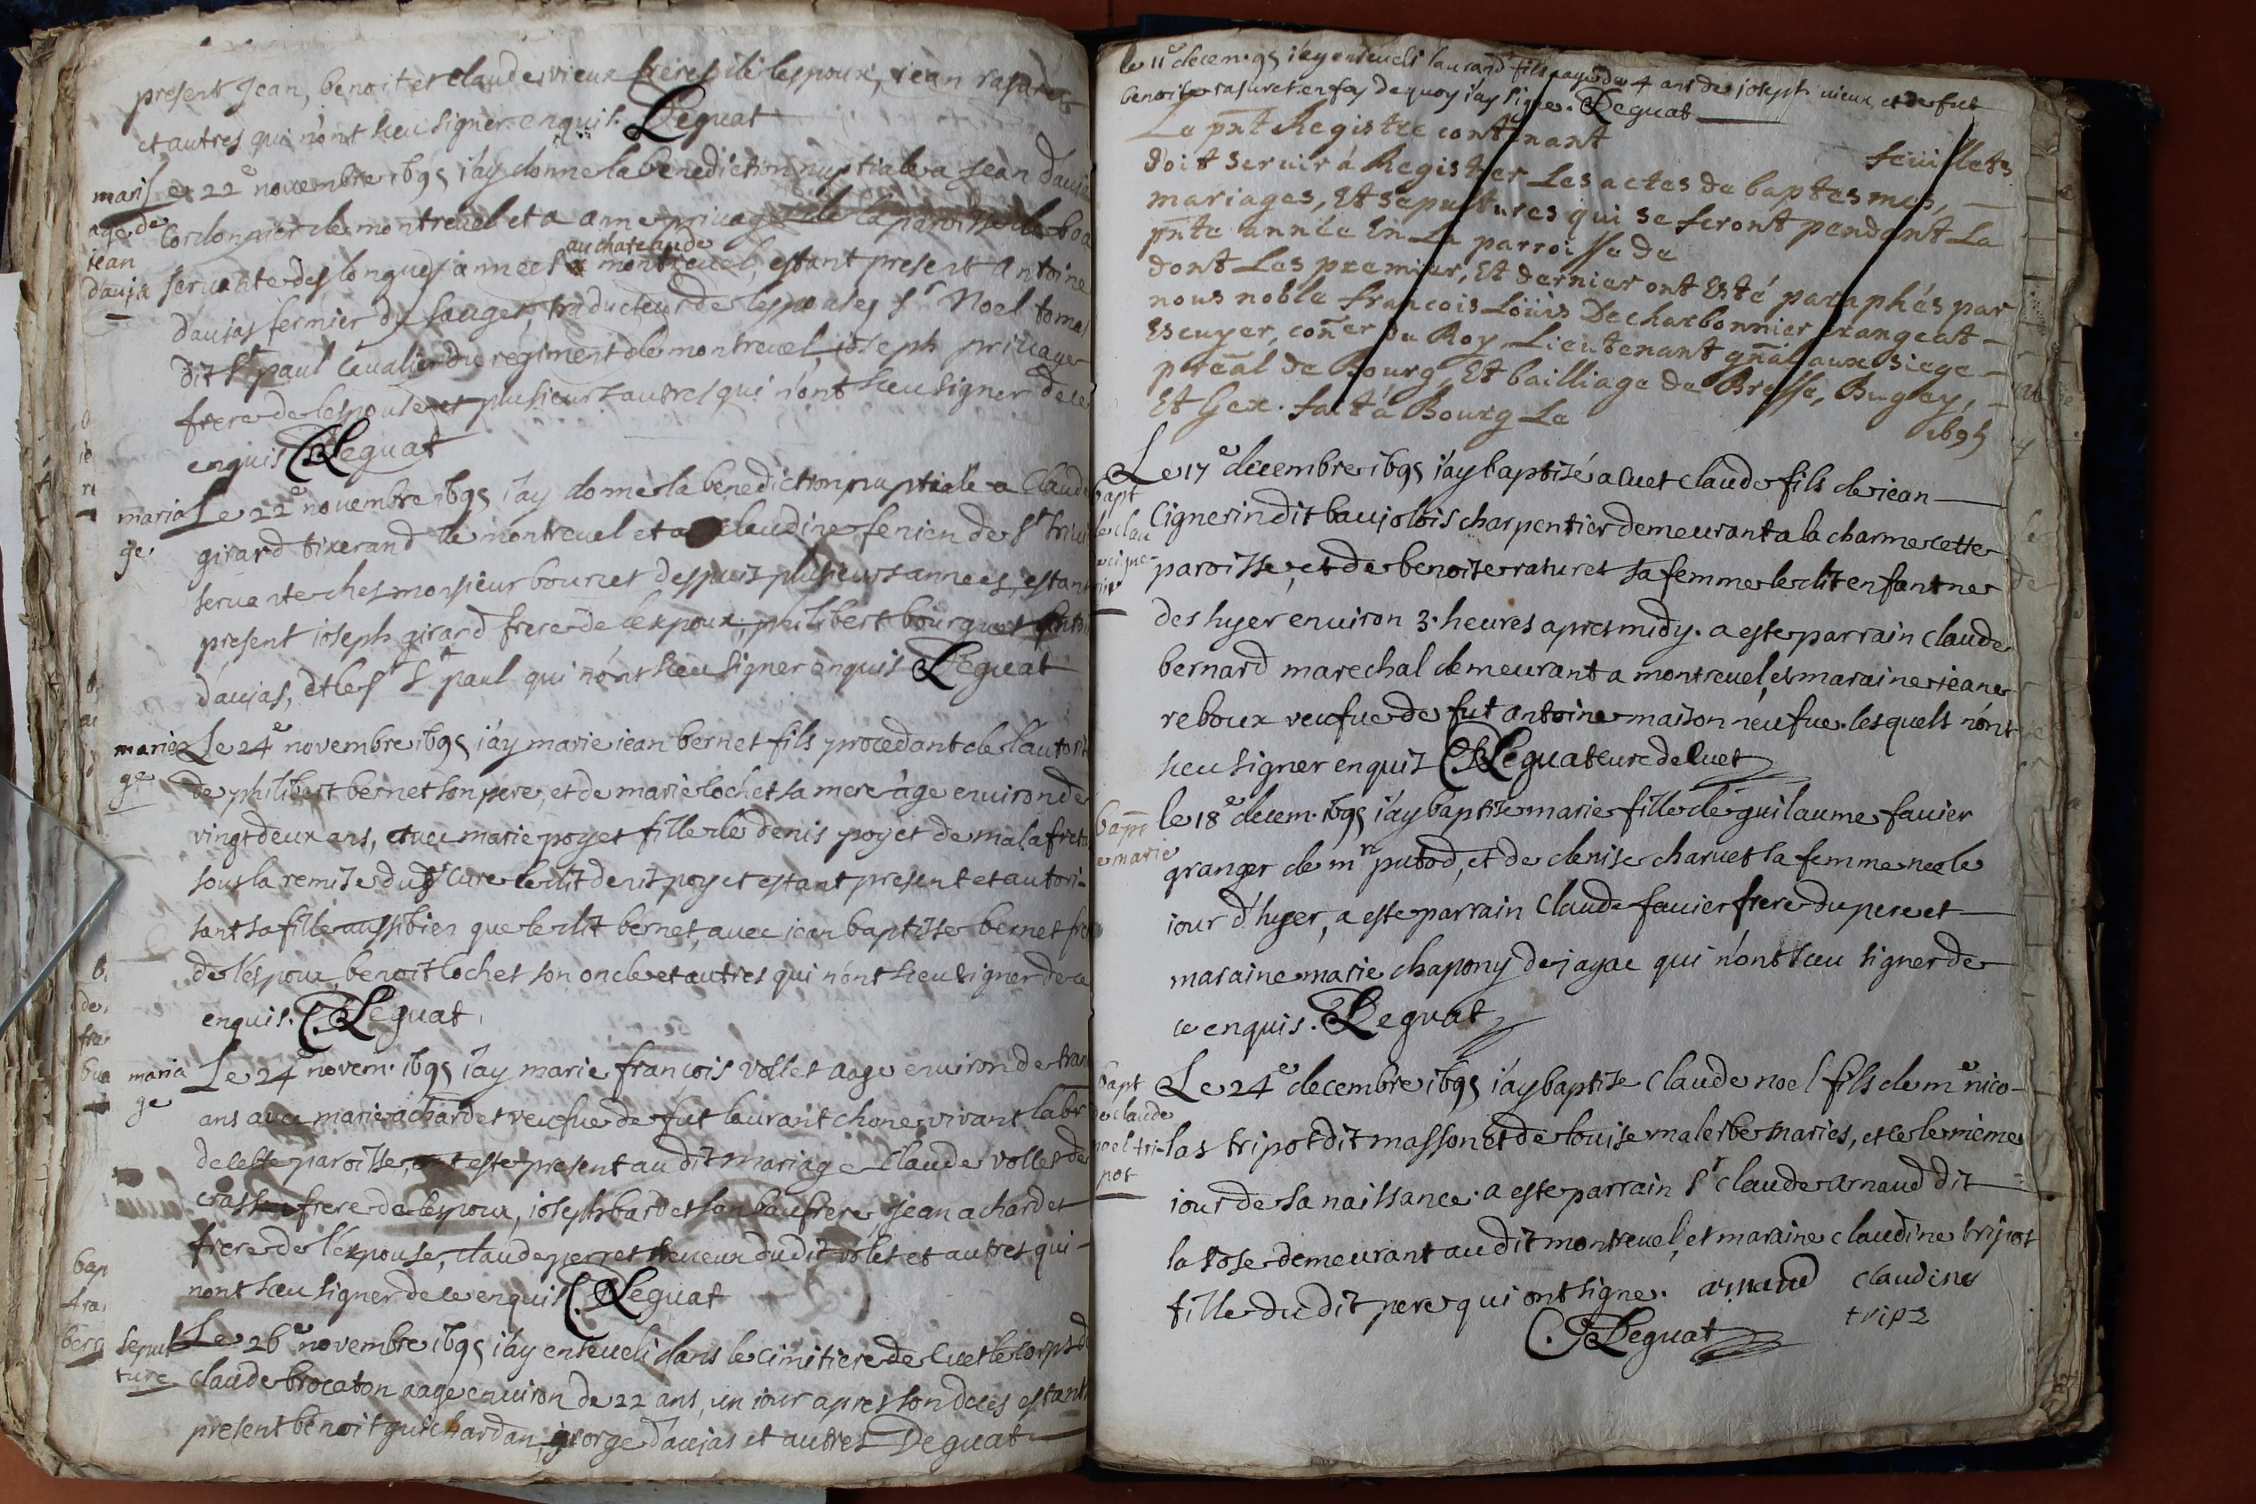 present Jean, benoit et claude vieux freres de lespoux, jean rasuret
et autres qui n'ont sceu signer enquis. Deguat
mari
age de
jean
daujas
Le 22e novembre 1695 i'ay donne la benediction nuptiale a jean daujas
cordonnier de montrevel et a anne privage de la paroisse de
au chateau de
servante des longues annees a montrevel, estant present antoine
daujas fermier du sauget, traducteur de lespouse, sr Noel tomas
dit st paul cavalier du regiment de montrevel, joseph privage
frere de lespouse et plusieurs autres qui n'ont sceu signer de ce
enquis Deguat
maria
ge
Le 22e novembre 1695 i'ay donne la benediction nuptiale a claude
girard tixerand de montrevel et a claudine ferrien de st
servante ches monsieur bourcet despuis plusieurs annees, estant
present joseph girard frere de lexpoux, philibert bourguet
daujas, et le sr st paul qui n'ont sceu signer enquis Deguat
maria
ge
Le 24e novembre 1695 i'ay marie jean bernet fils procedant de l'autorite
de philibert bernet son pere, et de marie lochet sa mere age environ de
vingt deux ans, avec marie poyet fille de denis poyet de malafretaz
sous la remise du sr cure le dit denis poyet estant present et autori-
sant sa fille aussi bien que le dit bernet, avec jean baptiste bernet frere
de l'espoux, benoit lochet son oncle et autres qui n'ont sceu signer de ce
enquis. Deguat
maria
ge
Le 24e novem. 1695 i'ay marie francois vollet aage environ de trante
ans avec marie achardet veufue de fut laurant chone vivant
de ceste paroisse, ont este present au dit mariage claude vollet de
frere de lespoux, joseph bardet son beaufrere, jean achardet
frere de l'expouse, claude perret neveux du dit volet et autres qui
n'ont sceu signer de ce enquis Deguat
sepul
ture
Le 26e novembre 1695 i'ay enseveli dans le cimitiere de Cuet le corps de
claude brocaton aage environ de 22 ans, un jour apres son deces estant
present benoit guichardan, george daujas et autres Deguat
le 11e decem. 95 i'ay enseveli laurand fils aage de 4 ans de joseph vieux et de fut
benoite rasuret en foy de quoy i'ay signe. Deguat
Le pnt Registre contenant feuillets
doit servir á Registrer Les actes de baptesmes,
mariages, Et sepultures qui se feront pendant La
pnte année En La parroisse de
dont Les premier, Et dernier ont Esté paraphés par
nous noble francois Loüis Decharbonnier crangeat
Escuyer, coner du Roy Lieutenant gnal aux Siege
preal de Bourg, Et bailliage de Bresse, Bugey,
Et Gex. fait á Bourg Le 1695
bapt
de clau
de cigne-
rin
Le 17e decembre 1695 i'ay baptisé a Cuet claude fils de jean
Cignerin dit baujolois charpentier demeurant a la charme cette
paroisse, et de benoite rasuret sa femme le dit enfant ne
des hyer environ 3 heures apres midy. a este parrain claude
bernard marechal demeurant a montrevel, et maraine jeane
reboux veufue de fut antoine maison neufue. lesquels n'ont
sceu signer enquis Deguat cure de Cuet
bapt
e marie
le 18e decem. 1695 i'ay baptise marie fille de guilaume favier
granger de mr putod, et de denise charvet sa femme nee le
jour d'hyer, a este parrain claude favier frere du pere et
maraine marie chapony de jayac qui n'ont sceu signer de
ce enquis. Deguat
bapt
de claude
noel tri-
pot
Le 24e decembre 1695 i'ay baptise claude noel fils de me nico-
las tripot dit masson et de louise malerbe maries, et ce le meme
jour de sa naissance. a este parrain sr claude arnaud dit
la rose demeurant au dit montrevel, et maraine claudine tripot
fille du dit pere qui ont signe. arnaud claudine
trip2
Deguat